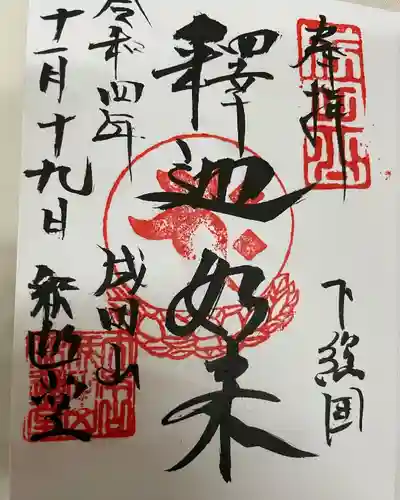 奉拝
下総国
釋迦如来
令和四年
成田山
十一月十九日
釈迦堂